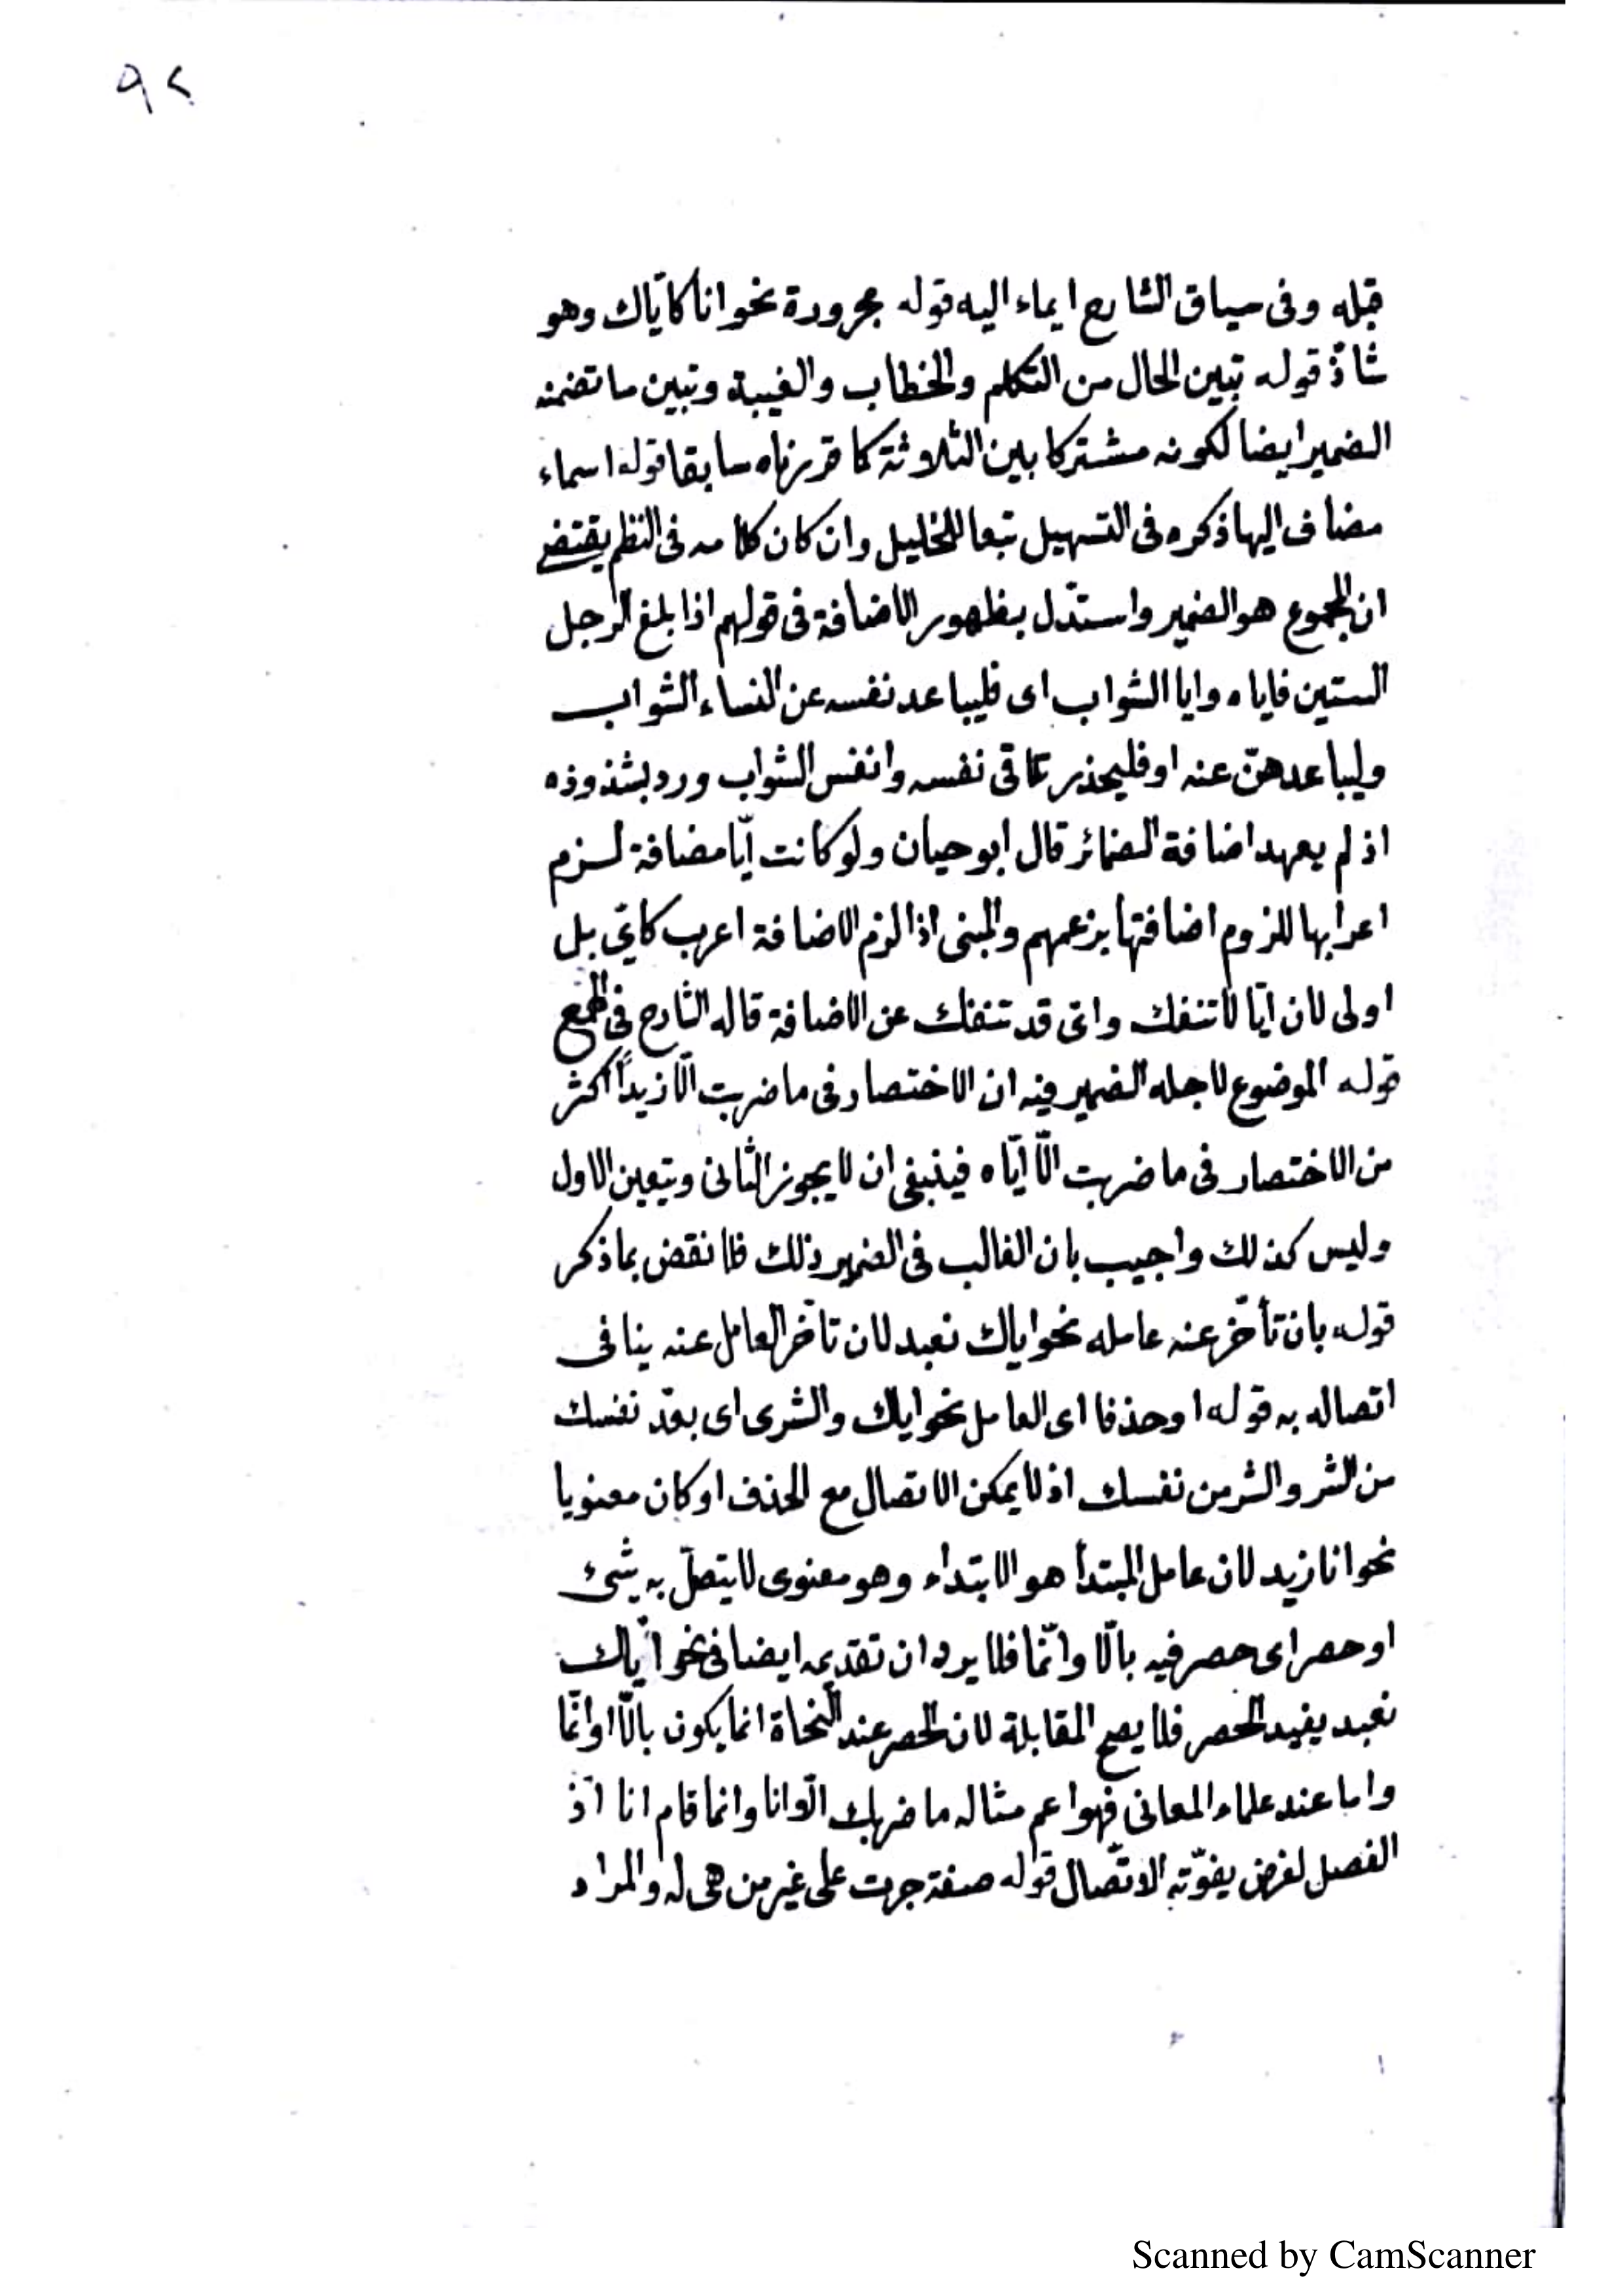 ٩٢
قبله وفى سياق الشارح ايماء اليه قوله مجرورة نحو انا كاياك وهو
شاذ قوله تبين الحال من التكلم والخطاب والغيبة وتبين ما تضمنه
الضمير ايضا لكونه مشتركا بين الثلاثة كما قررناه سابقا قوله اسماء
مضاف اليها ذكره فى التسهيل تبعا للخليل وان كان كلامه فى النظم يقتضى
ان المجموع هو الضمير واستدل بظهور الاضافة فى قولهم اذا بلغ الرجل
الستين فاياه وايا الشواب اى فليباعد نفسه عن النساء الشواب
وليباعدهنّ عنه او فليحذر تلاقى نفسه وانفس الشواب ورد بشذوذه
اذ لم يعهد اضافة الضمائر قال ابو حيان ولو كانت ايّا مضافة لزم
اعرابها للزوم اضافتها بزعمهم والمبنى اذا لزم الاضافة اعرب كاىّ بل
اولى لان ايّا لا تنفك واىّ قد تنفك عن الاضافة قاله الشارح فى الهمع
قوله الموضوع لاجله الضمير فيه ان الاختصار فى ما ضربت الّا زيداً اكثر
من الاختصار فى ما ضربت الّا ايّاه فينبغى ان لا يجوز الثانى ويتعين الاول
وليس كذلك واجيب بان الغالب فى الضمير ذلك فلا نقض بما ذكر
قوله بان تأخّر عنه عامله نحو اياك نعبد لان تأخّر العامل عنه ينافى
اتصاله به قوله او حذفا اى العامل نحو اياك والشرى اى بعّد نفسك
من الشر والشر من نفسك اذ لا يمكن الاتصال مع الحذف او كان معنويا
نحو انا زيد لان عامل المبتدأ هو الابتداء وهو معنوى لا يتصلّ به شئ
او حصر اى حصر فيه بالّا وانّما فلا يرد ان تقديمه ايضا فى نحو ايّاك
نعبد يفيد الحصر فلا يصح المقابلة لان الحصر عند النحاة انما يكون بالّا او انّما
واما عند علماء المعانى فهو اعم مثاله ما ضربك الّا انا وانما قام انا اذ
الفصل لغرض يفوّته الاتّصال قوله صفة جرت على غير من هى له والمراد
Scanned by CamScanner